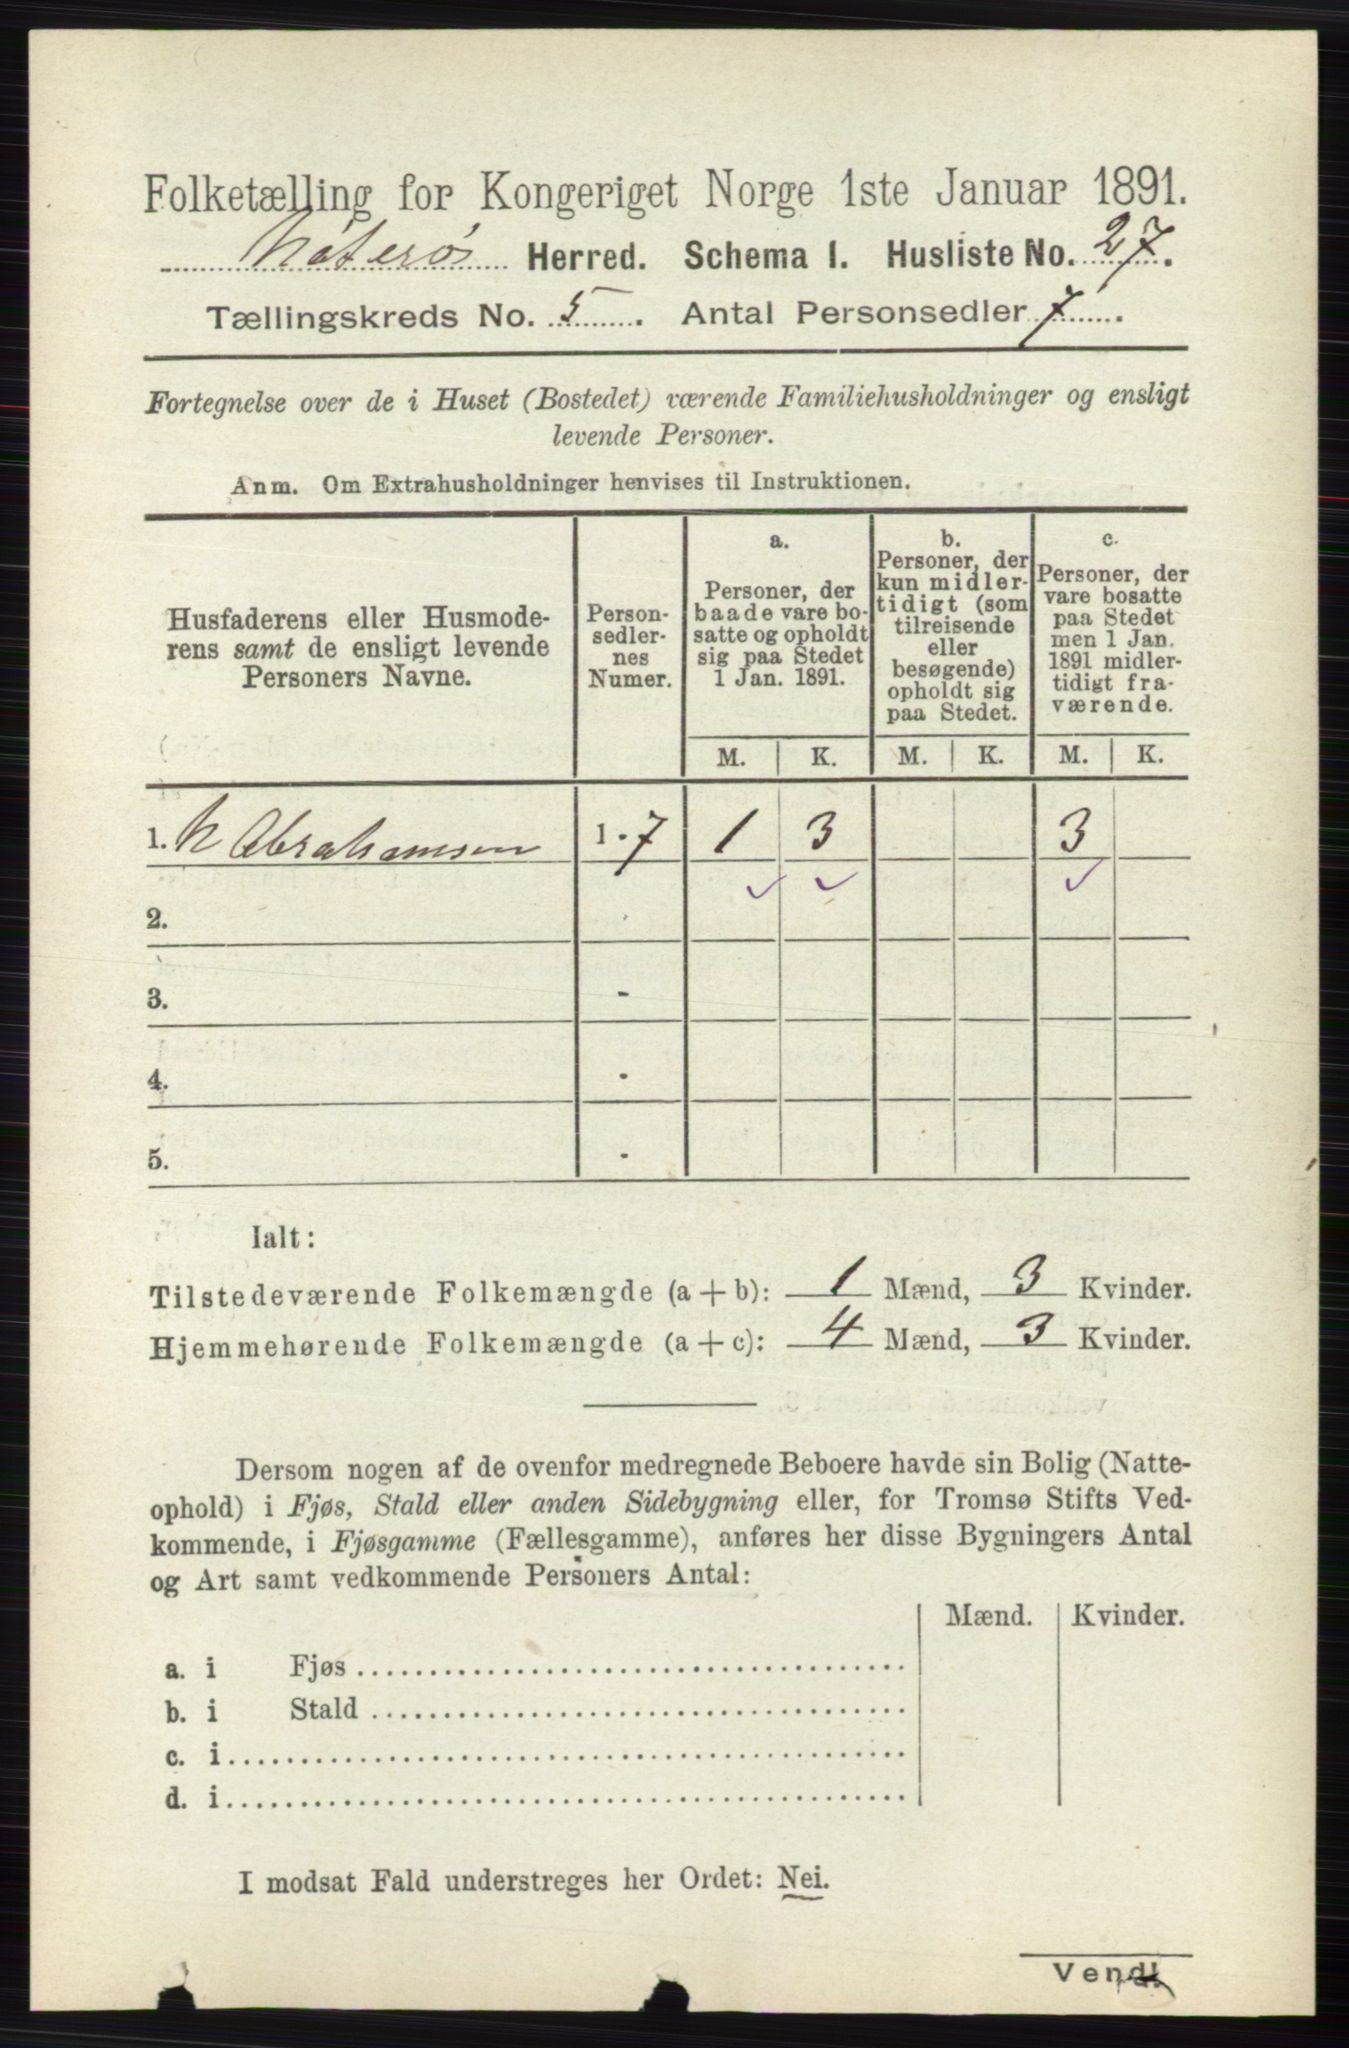 Folketælling for Kongeriget Norge 1ste Januar 1891.
Nøterøs Herred. Schema I. Husliste No. 27.
Tællingskreds No. 5. Antal Personsedler 7.
Fortegnelse over de i Huset (Bostedet) værende Familiehusholdninger og ensligt
levende Personer.
Anm. Om Extrahusholdninger henvises til Instruktionen.
Husfaderens eller Husmode-
rens samt de ensligt levende
Personers Navne.
Person-
sedler-
nes
Numer.
a.
Personer, der
baade vare bo-
satte og opholdt
sig paa Stedet
1 Jan. 1891.
b.
Personer, der
kun midler-
tidigt (som
tilreisende
eller
besøgende)
opholdt sig
paa Stedet.
c.
Personer, der
vare bosatte
paa Stedet
men 1 Jan.
1891 midler-
tidigt fra-
værende.
M. K. M. K. M. K.
1. N Abrahamsen 1 - 7 1 3 3
2.
3. -
4. -
5. -
Ialt:
Tilstedeværende Folkemængde (a + b): 1 Mænd, 3 Kvinder.
Hjemmehørende Folkemængde (a + c): 4 Mænd, 3 Kvinder.
Dersom nogen af de ovenfor medregnede Beboere havde sin Bolig (Natte-
ophold) i Fjøs, Stald eller anden Sidebygning eller, for Tromsø Stifts Ved-
kommende, i Fjøsgamme (Fællesgamme), anføres her disse Bygningers Antal
og Art samt vedkommende Personers Antal:
Mænd. Kvinder.
a. i Fjøs
b. i Stald
c. i
d. i
I modsat Fald understreges her Ordet: Nei.
Vend!